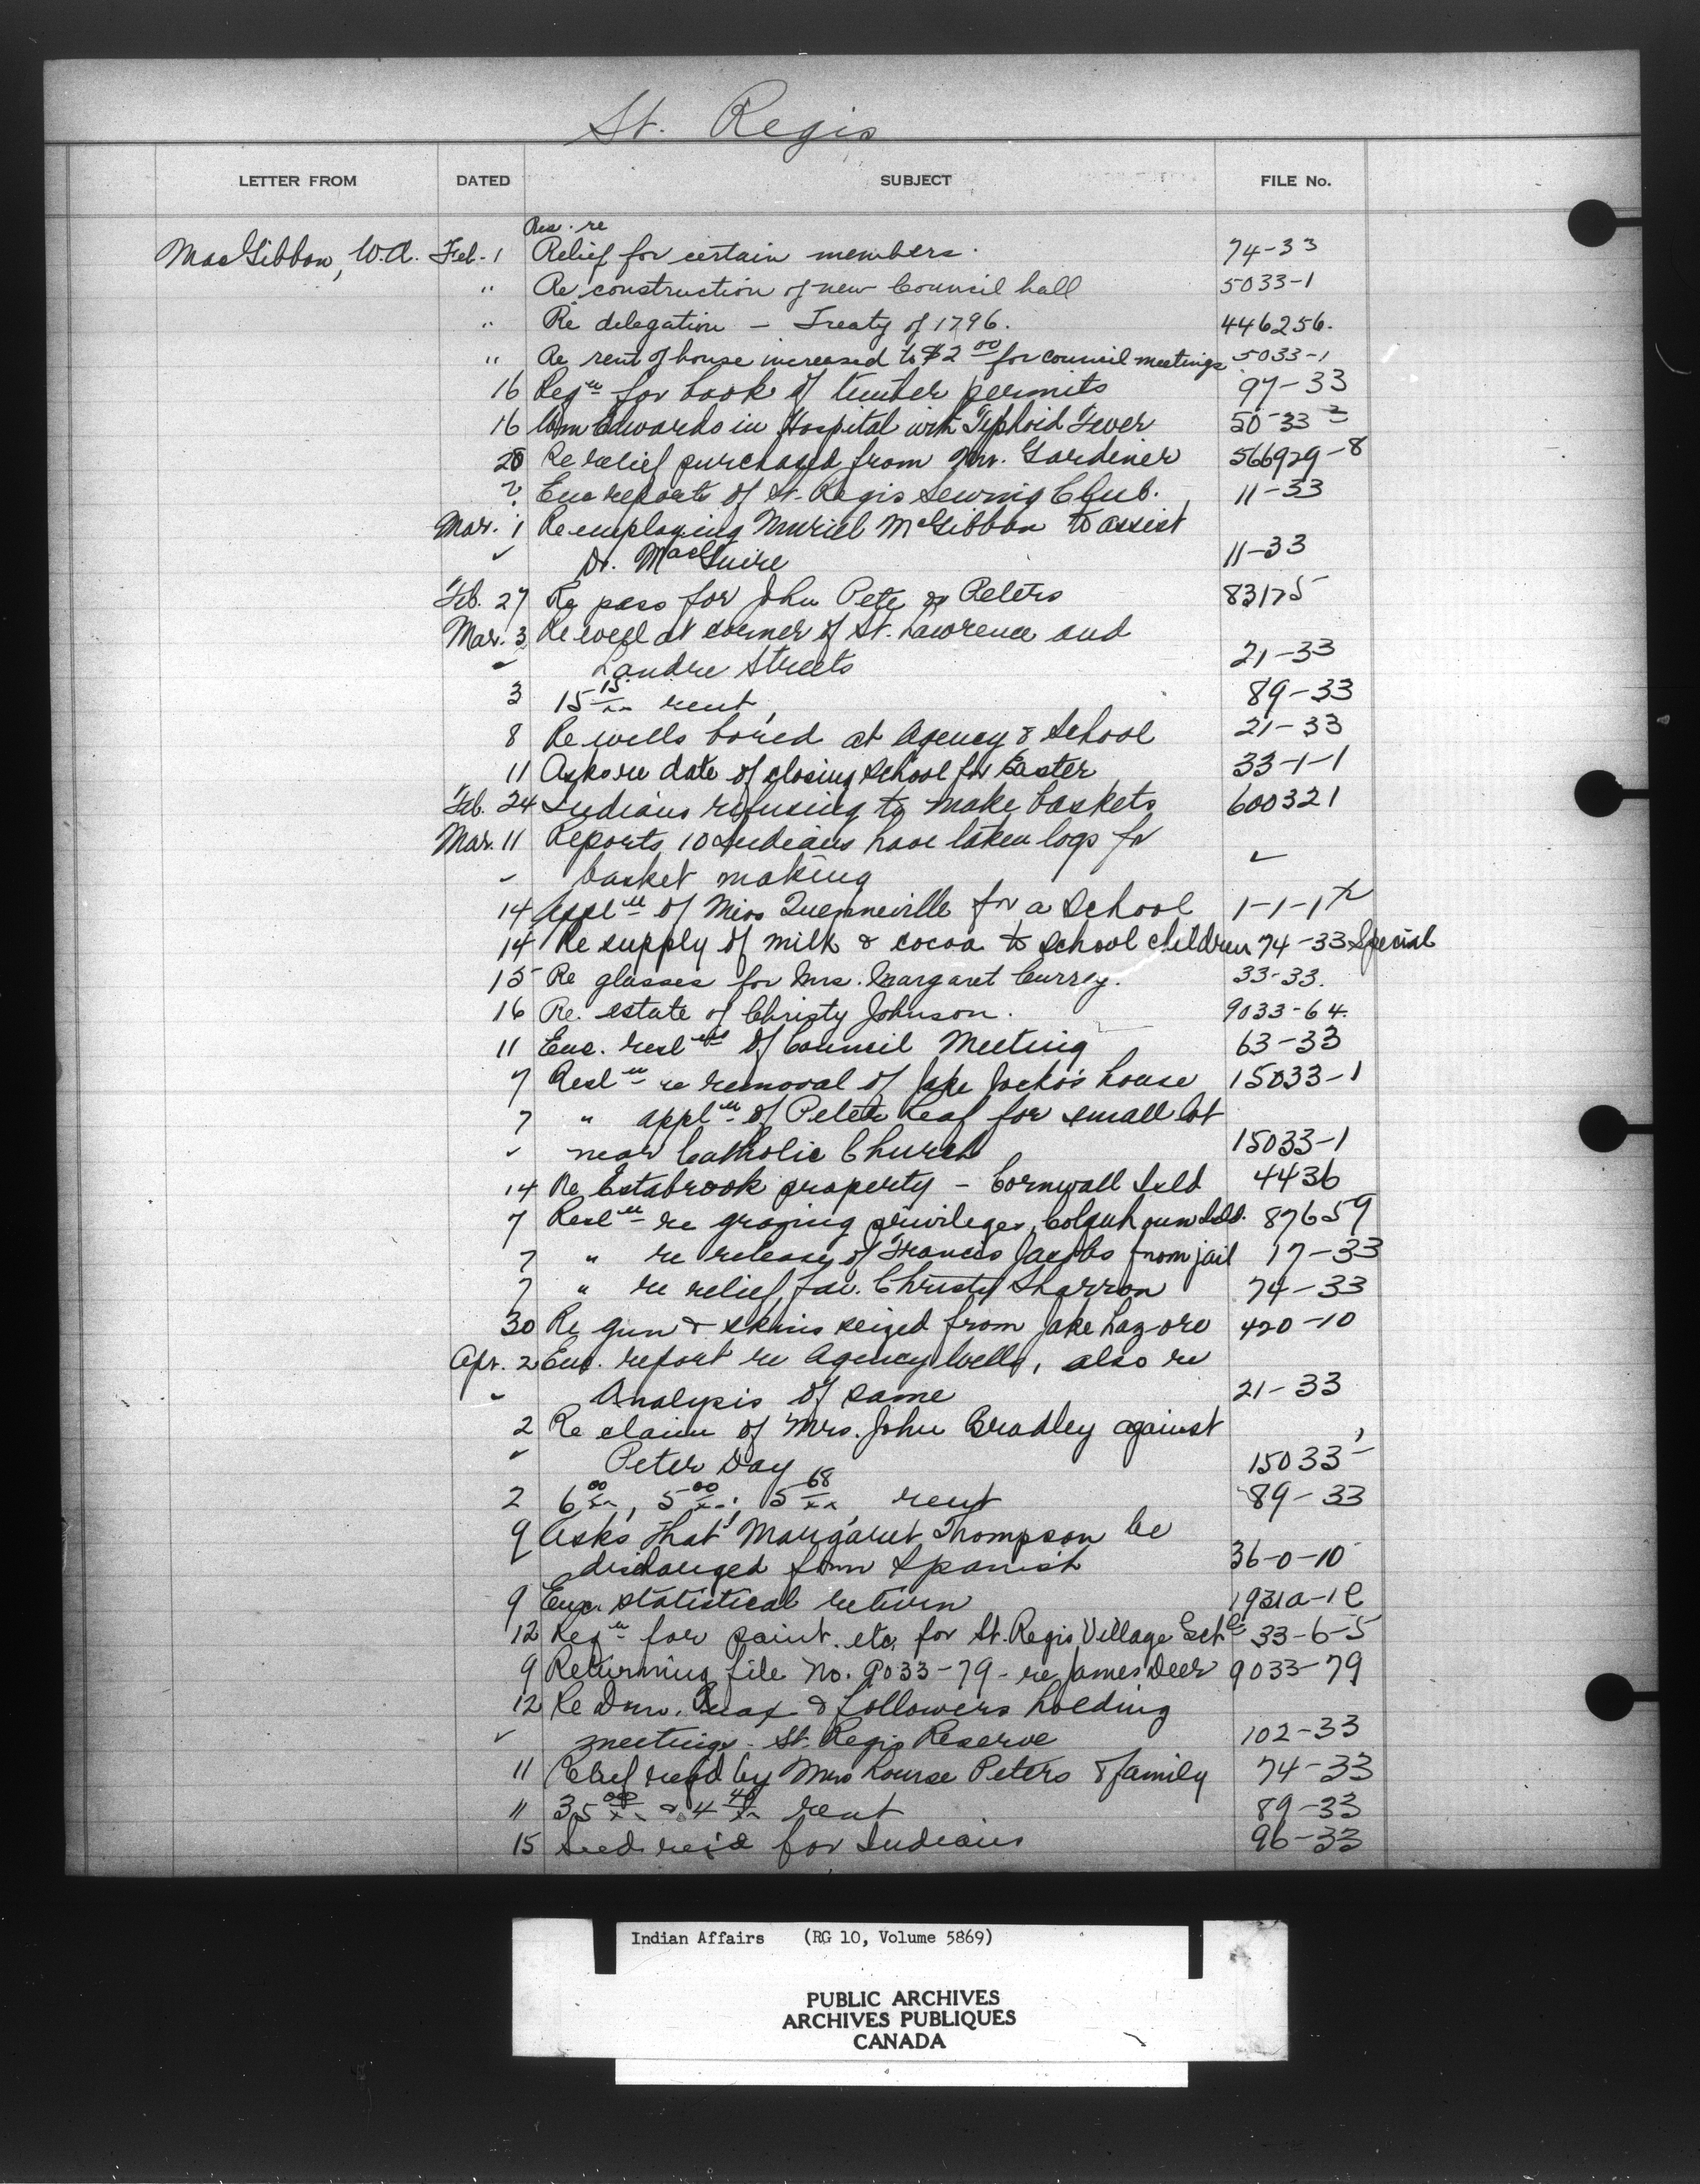 St. Regis
LETTER FROM DATED SUBJECT FILE No.
Res. re
MacGibbon, W.A. Feb. 1 Relief for certain members. 74-33
" Re construction of new Council hall 5033-1
" Re delegation — Treaty of 1796. 446256.
" Re rent of house increased to $2 00 for council meetings 5033-1
16 Reqn for book of timber permits 97-33
16 Wm Edwards in Hospital with Typhoid Fever 50-33 2
20 Re relief purchased from Mr. Gardiner 566929-8
? Enc reports of St. Regis Sewing Club. 11-33
Mar. 1 Re employing Muriel McGibbon to assist
✓ Dr. MacGuire 11-33
Feb. 27 Re pass for John Pete or Peters 83175
Mar. 3 Re well at corner of St. Lawrence and
✓ Landre Streets 21-33
3 15 15/xx rent 89-33
8 Re wells bored at Agency & School 21-33
11 Asks re date of closing School for Easter 33-1-1
Feb. 24 Indians refusing to make baskets 600321
Mar. 11 Reports 10 Indians have taken logs for
✓ basket making ✓
14 Appln of Miss Quenneville for a School 1-1-1
14 Re supply of milk & cocoa to School children 74-33 Special
15 Re glasses for Mrs. Margaret Currey. 33-33.
16 Re. estate of Christy Johnson. 9033-64.
11 Enc. reslns of Council Meeting 63-33
7 Resln re removal of Jake Jocko's house 15033-1
7 " appln of Peter Leaf for small lot
✓ near Catholic Church 15033-1
14 Re Estabrook property - Cornwall Isld 4436
7 Resln re grazing privileges, Colquhoun Isld. 87659
7 " re release of Francis Jacobs from jail 17-33
7 " re relief for Christy Sharron 74-33
30 Re gun & skins seized from Jake Lazore 420-10
Apr. 2 Enc. report re Agency Wells, also re
✓ Analysis of same 21-33
2 Re claim of Mrs. John Bradley against
✓ Peter Day 15033-
2 6 00/xx, 5 00/xx, 5 68/xx rent 89-33
9 Asks that Margaret Thompson be
discharged from Spanish 36-0-10
9 Enc. statistical return 1931a-1
12 Reqn for paint. etc, for St. Regis Village Schl 33-6-5
9 Returning file No. 9033-79 - re James Deer 9033-79
12 Re & followers holding
✓ meetings - St. Regis Reserve 102-33
11 Relief reqd by Mrs Louise Peters & family 74-33
11 35 00/xx & 4 40/xx rent 89-33
15 Seed req'd for Indians 96-33
Indian Affairs (RG 10, Volume 5869)
PUBLIC ARCHIVES
ARCHIVES PUBLIQUES
CANADA